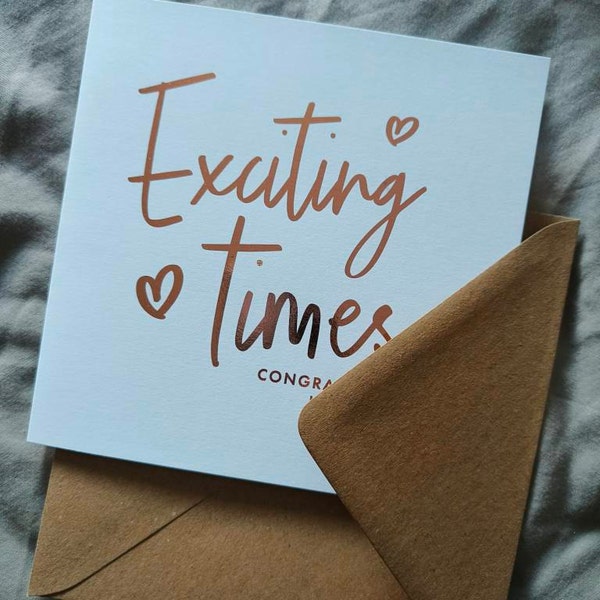 Exciting
Times
CONGRA